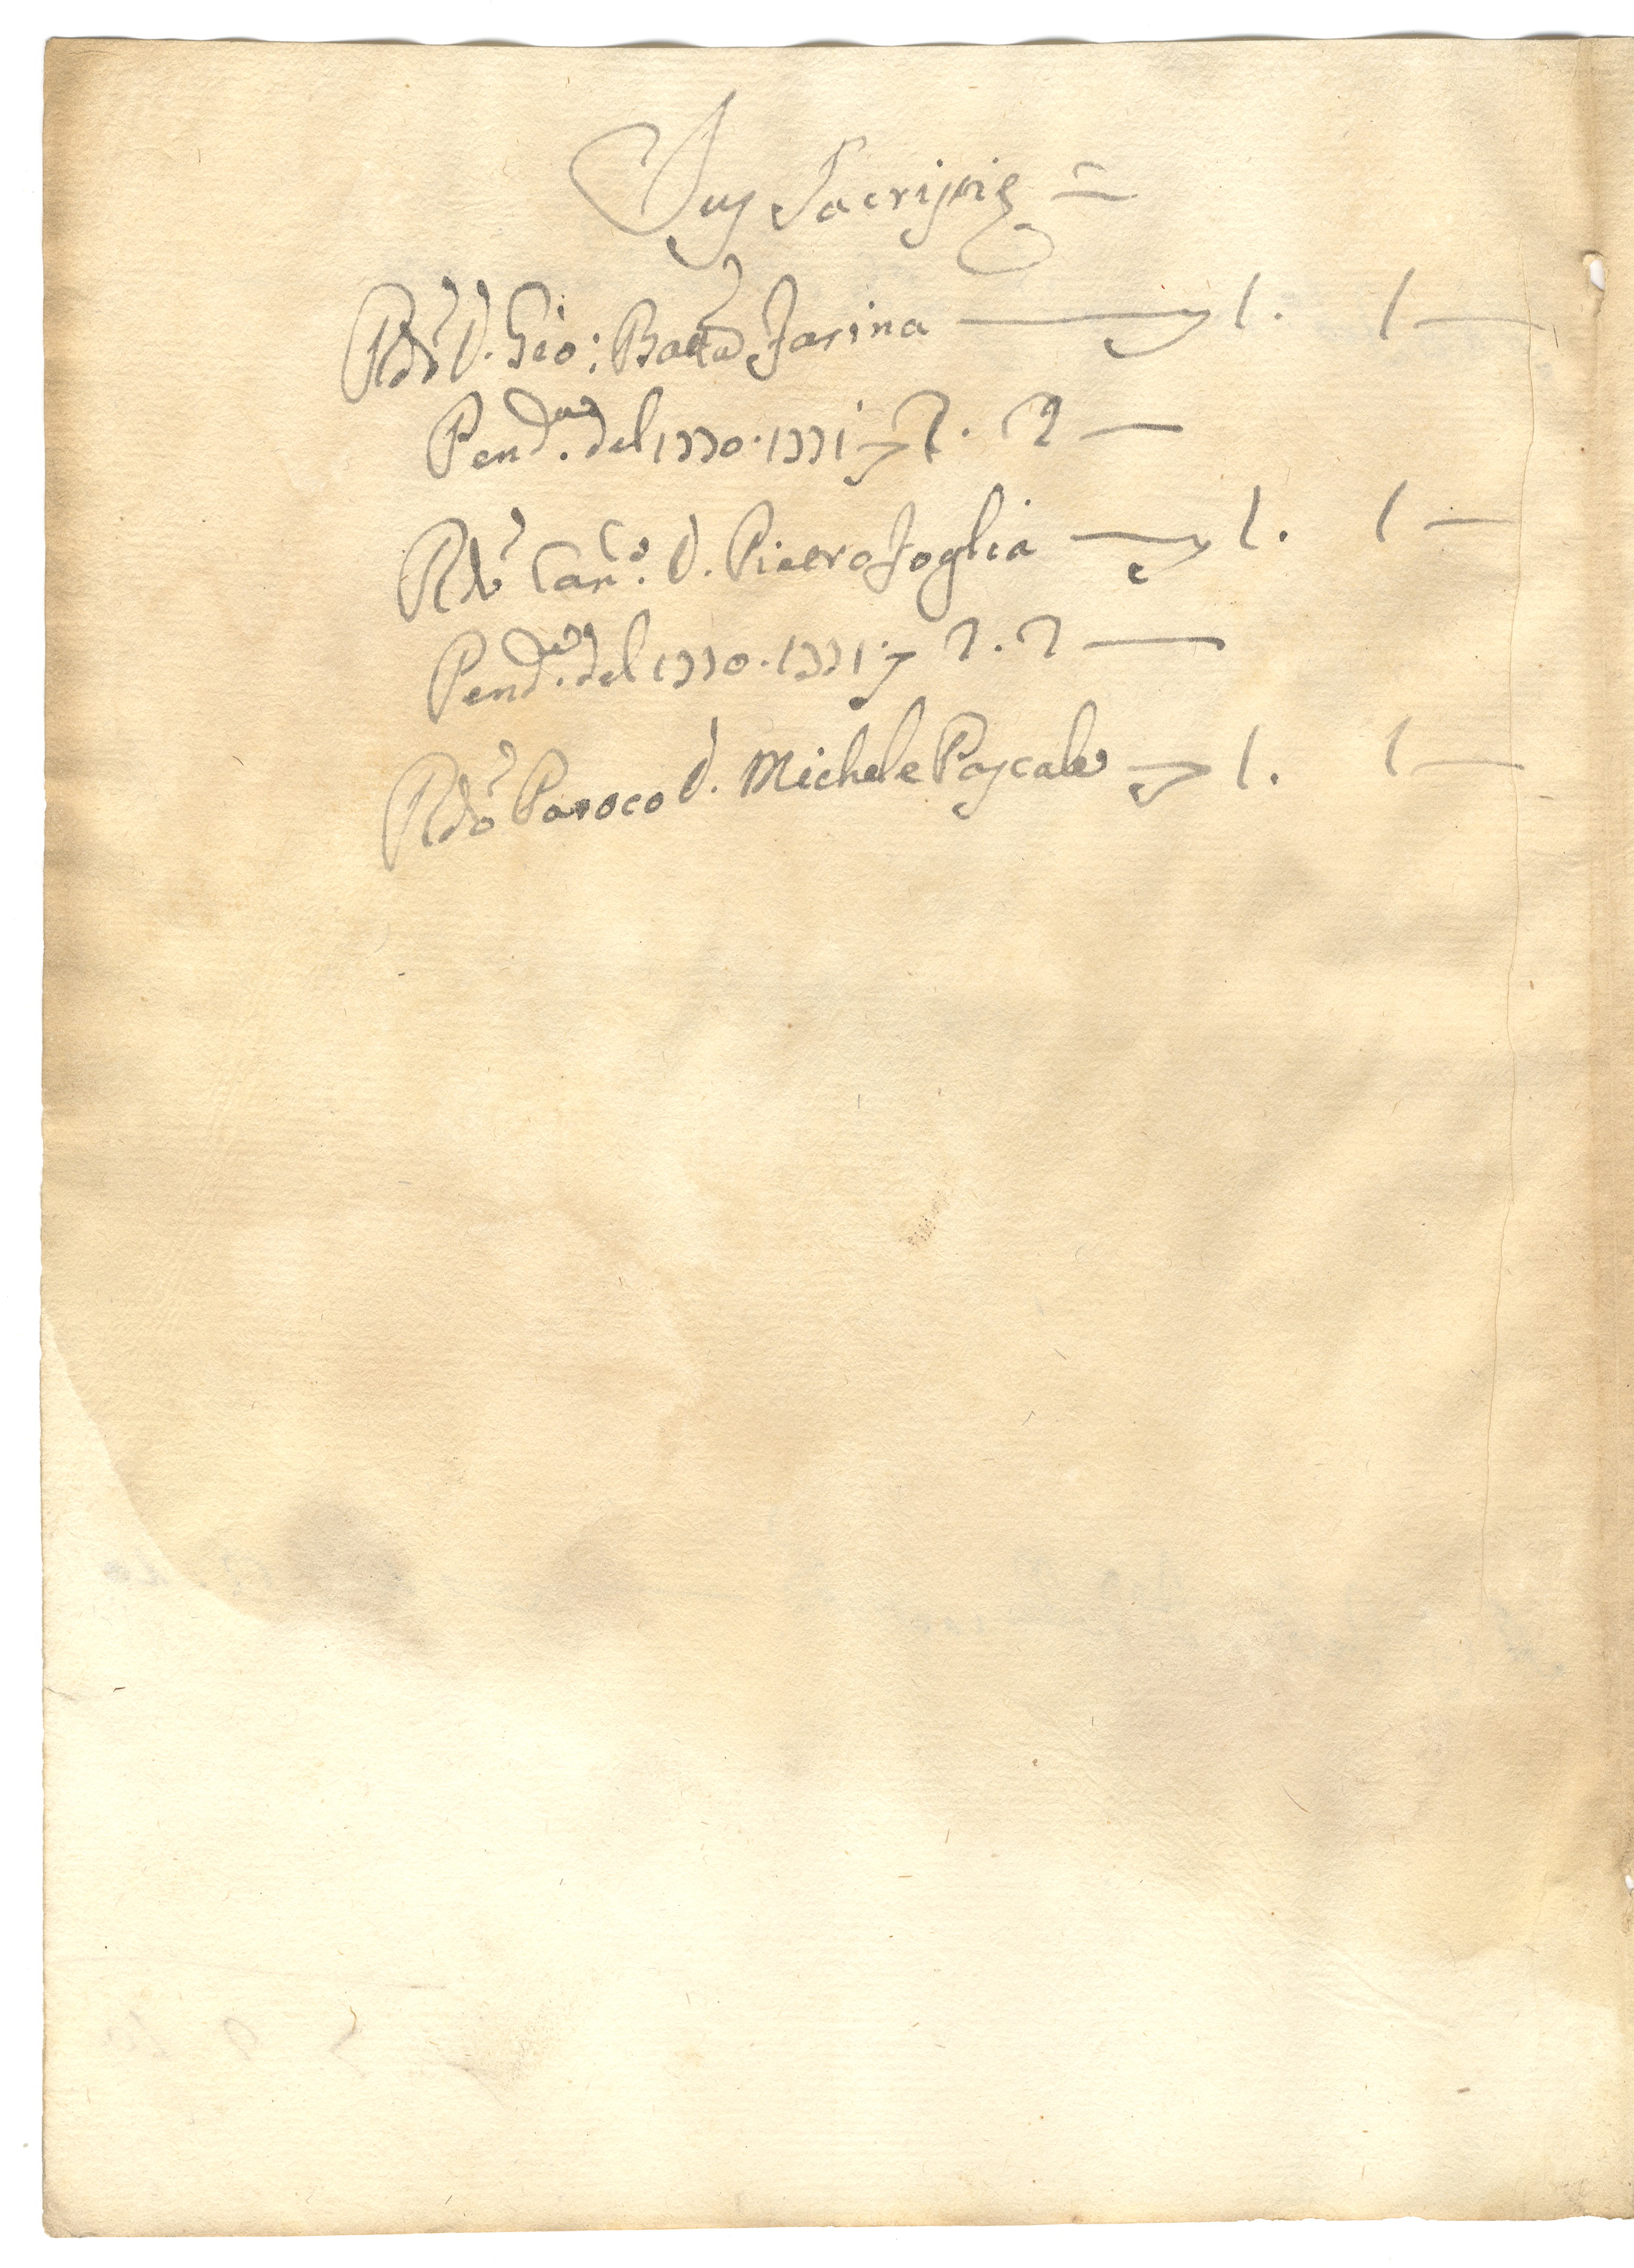 Jus Sacristie =
Rdo D. Gio: Batta Farina 1. 1 —
Pende. del 1770. 1771 2. 2 —
Rdo Canco. D. Pietro Foglia 1. 1 —
Pende. del 1770. 1771 2. 2 —
Rdo Paroco D. Michele Pascale 1. 1 —